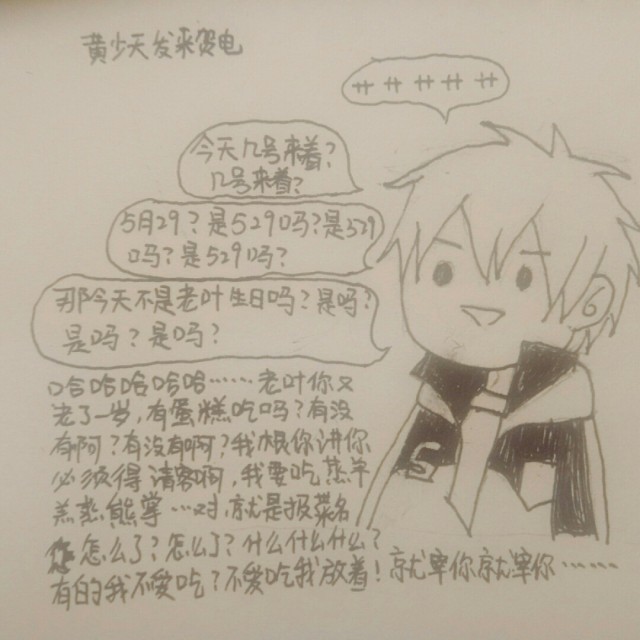 黄少天发来贺电
卄 卄 卄 卄 卄
今天几号来着?
几号来着?
5月29?是529吗?是529
吗?是529吗?
那今天不是老叶生日吗?是吗?
是吗?是吗?
哈哈哈哈哈……老叶你又
老了一岁,有蛋糕吃吗?有没
有啊?有没有啊?我跟你讲你
必须得请客啊,我要吃蒸羊
羔蒸熊掌…对,就是报菜名
怎么了?怎么了?什么什么什么?
有的我不爱吃?不爱吃我放着!就寒你就寒你……